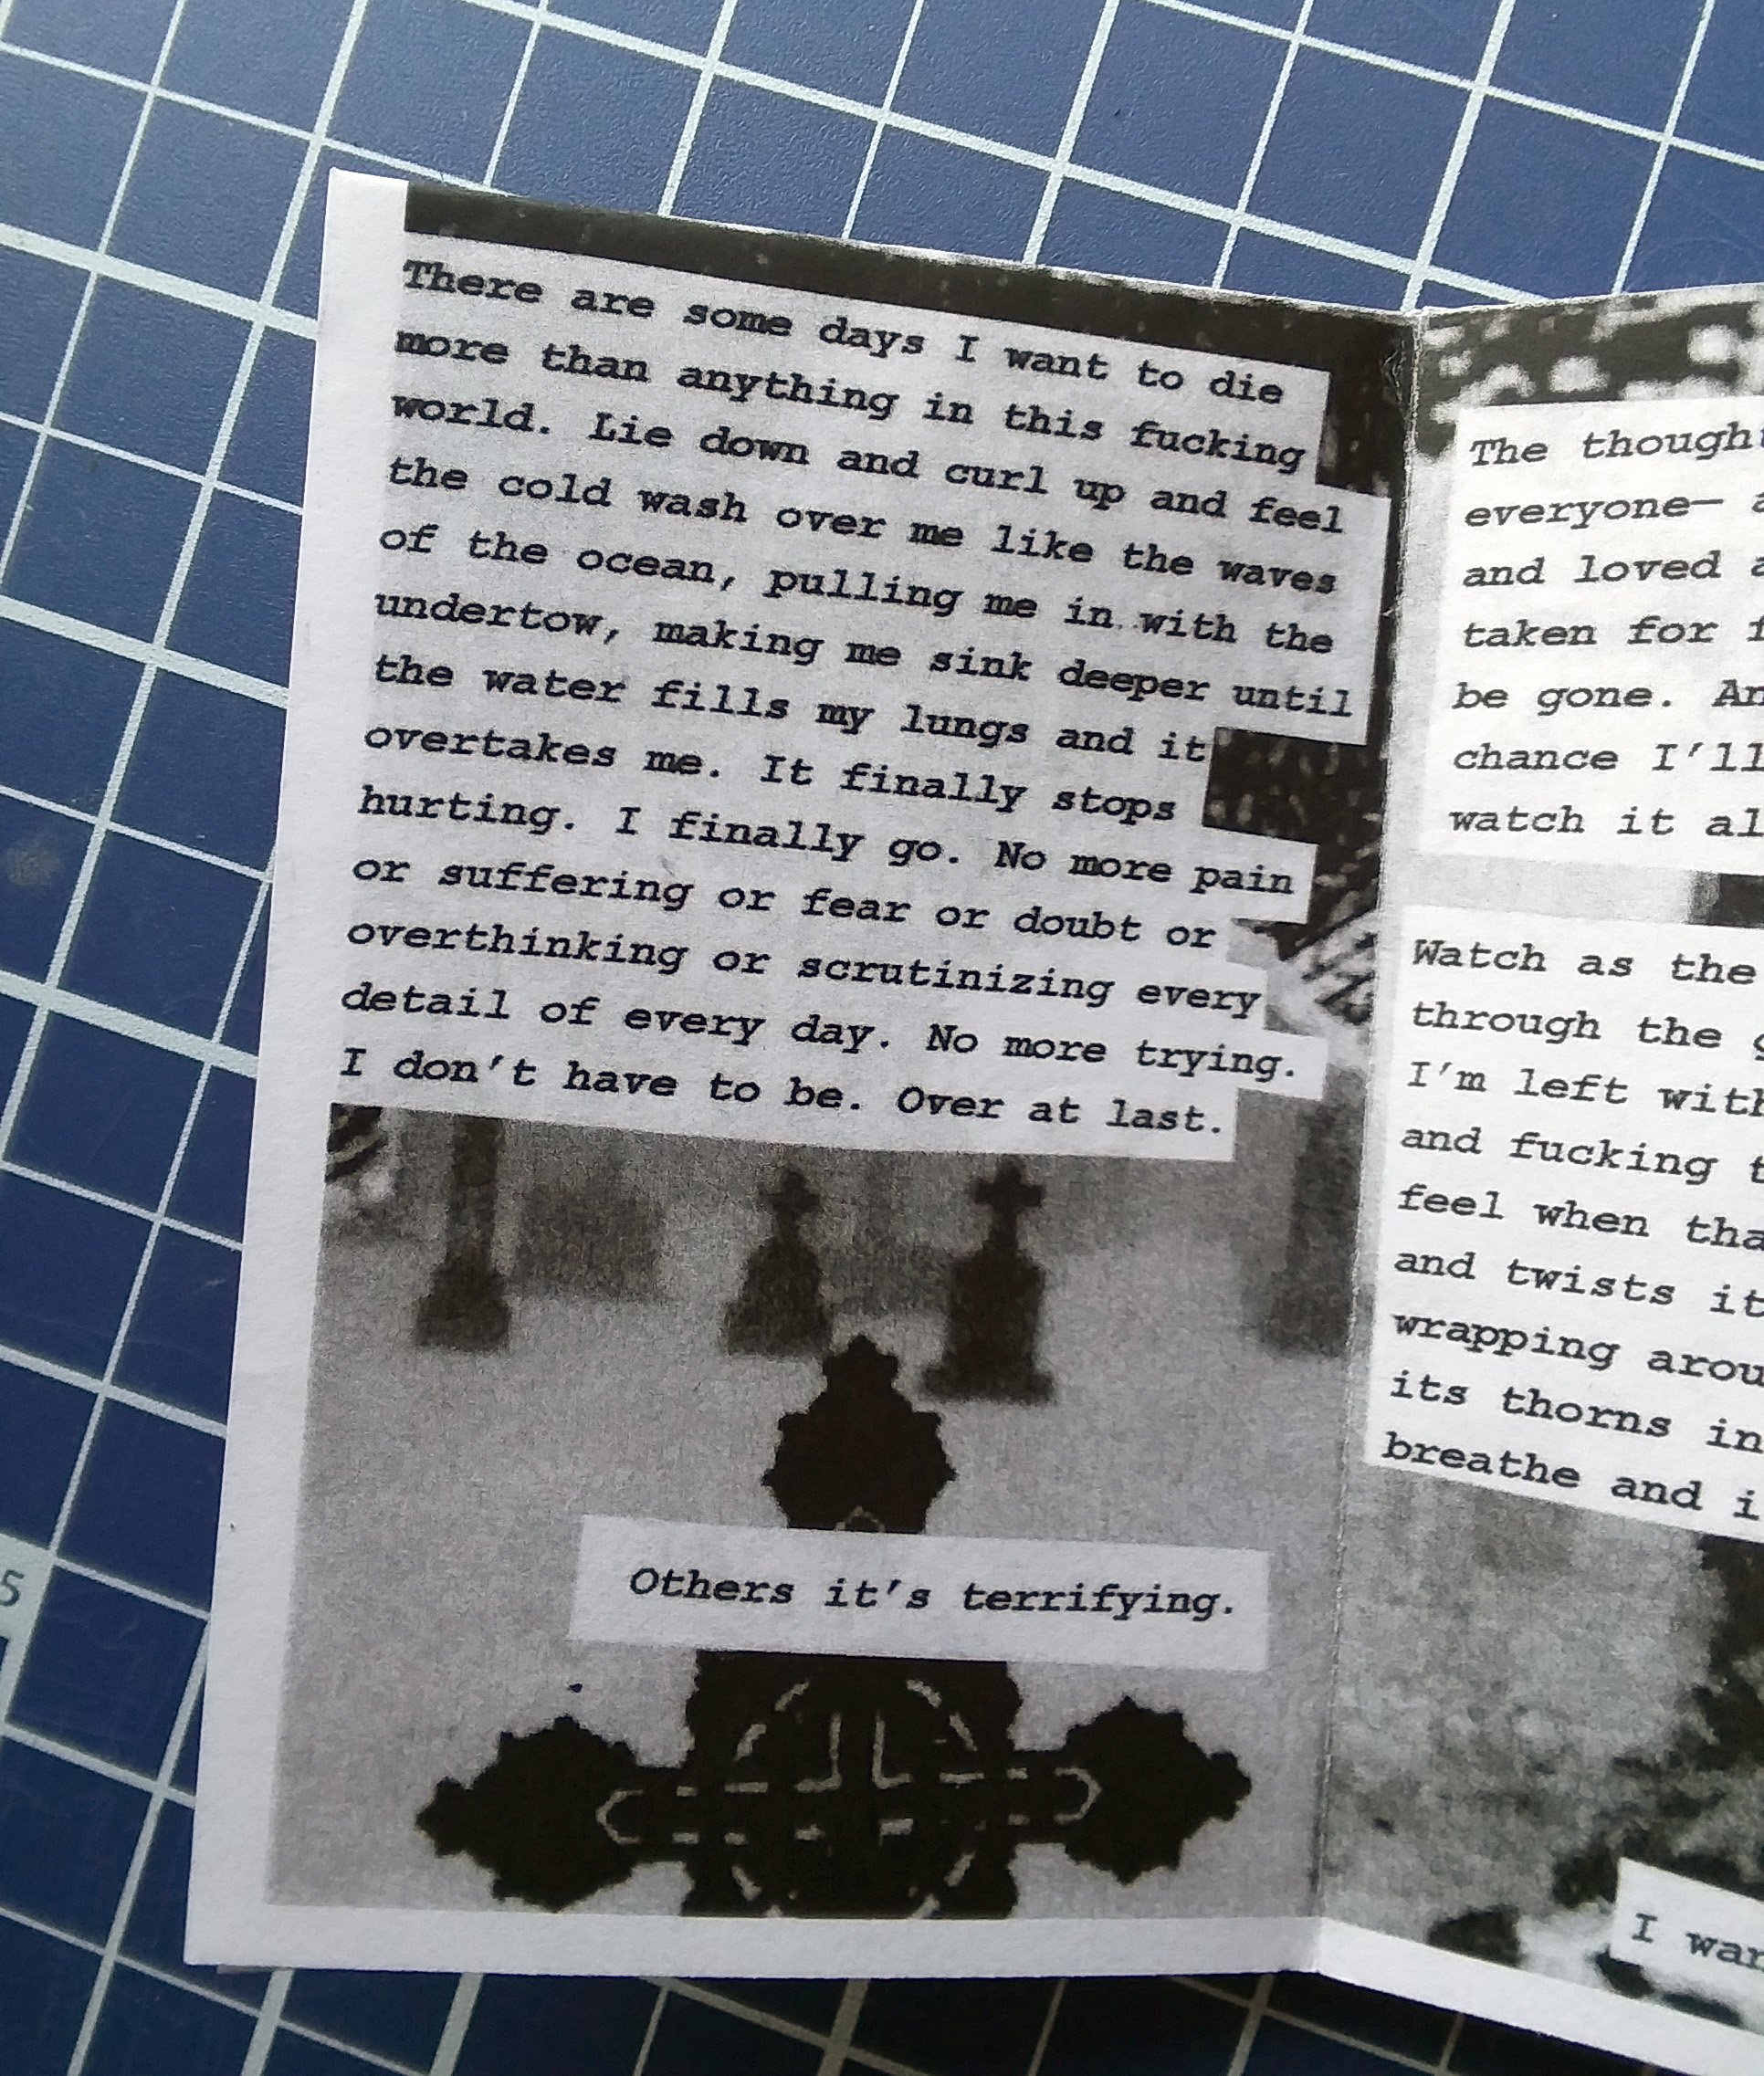 There are some days I want to die
more than anything in this fucking
world. Lie down and curl up and feel
the cold wash over me like the waves
of the ocean, pulling me in with the
undertow, making me sink deeper until
the water fills my lungs and it
overtakes me. It finally stops
hurting. I finally go. No more pain
or suffering or fear or doubt or
overthinking or scrutinizing every
detail of every day. No more trying.
I don't have to be. Over at last.
Others it's terrifying.
The
everyone—
and loved
taken for
be gone.
chance I'll
watch it
Watch as the
through the
I'm left
and fucking
feel when
and twists
wrapping
its thorns
breathe and
I
5